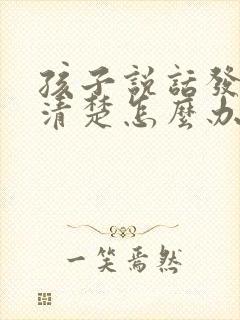 孩子説話發
清楚怎麼办
一笑焉然